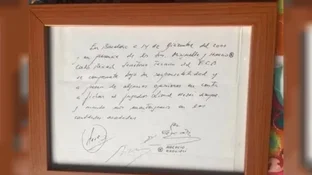 En Barcelona a 14 de Diciembre del 2000
y en presencia de los Sres Minguella y Horacio
Carles Rexach Secretario Técnico del F.C.B
se compromete bajo su responsabilidad y
a pesar de algunas opiniones en contra
a fichar al jugador Lionel Messi siempre
y cuando nos mantengamos en las
cantidades acordadas